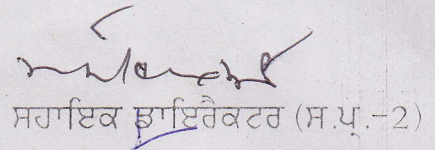 ਸਹਾਇਕ ਡਾਇਰੈਕਟਰ (ਸ.ਪ੍ਰ.-2)